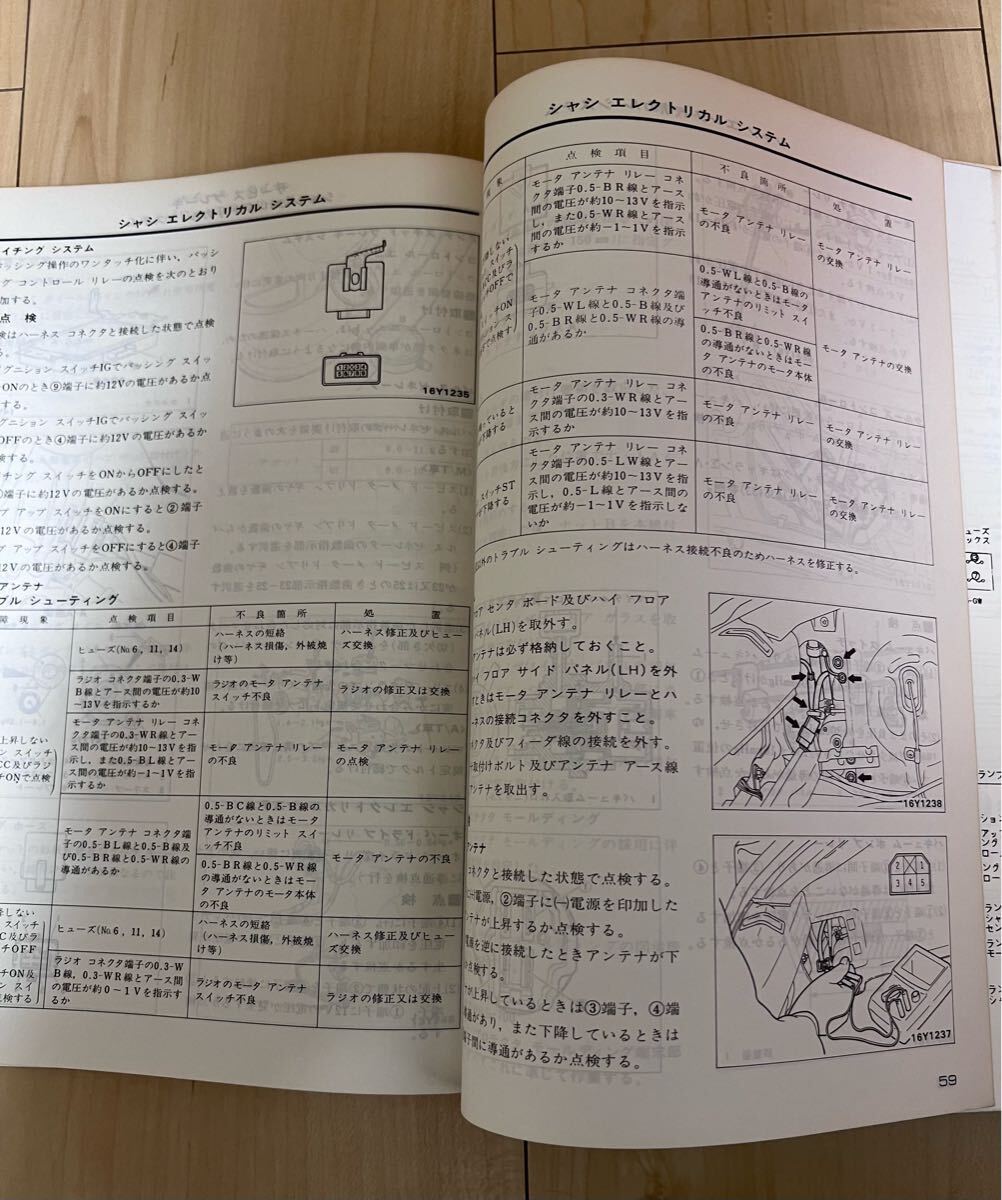 シャシ エレクトリカル システム
イチング システム
ッシング操作のワンタッチ化に伴い，パッシ
グ コントロール リレーの点検を次のとおり
加する。
点 検
検はハーネス コネクタと接続した状態で点検
る。
グニション スイッチIGでパッシング スイッ
ONのとき⑨端子に約12Vの電圧があるか点
する。
グニション スイッチIGでパッシング スイッ
OFFのとき④端子に約12Vの電圧があるか
検する。
チング スイッチをONからOFFにしたと
端子に約12Vの電圧があるか点検する。
プ アップ スイッチをONにすると②端子
12Vの電圧があるか点検する。
グ アップ スイッチをOFFにすると④端子
12Vの電圧があるか点検する。
16Y1235
アンテナ
ブル シューティング
障 現 象
点 検 項 目
不 良 箇 所
処 置
ヒューズ(No.6，11，14)
ハーネスの短絡
(ハーネス損傷，外被焼
け等)
ハーネス修正及びヒュー
ズ交換
ラジオ コネクタ端子の0.3-W
B線とアース間の電圧が約10
～13Vを指示するか
ラジオのモータ アンテナ
スイッチ不良
ラジオの修正又は交換
上昇しない
ン スイッチ
CC及びラジ
ONで点検
モータ アンテナ リレー コネ
クタ端子の0.3-WR線とアー
ス間の電圧が約10～13Vを指
示し，また0.5-BL線とアー
ス間の電圧が約-1～1Vを指
示するか
モータ アンテナ リレー
の不良
モータ アンテナ リレー
の点検
モータ アンテナ コネクタ端
子の0.5-BL線と0.5-B線及
び0.5-BR線と0.5-WR線の
導通があるか
0.5-BC線と0.5-B線の
導通がないときはモータ
アンテナのリミット スイ
ッチ不良
0.5-BR線と0.5-WR線
の導通がないときはモー
タ アンテナのモータ本体
の不良
モータ アンテナの不良
降しない
スイッチ
C及びラ
チOFF
チON及
ン スイ
検する
ヒューズ(No.6，11，14)
ハーネスの短絡
(ハーネス損傷，外被焼
け等)
ハーネス修正及びヒュー
ズ交換
ラジオ コネクタ端子の0.3-W
B線，0.3-WR線とアース間
の電圧が約0～1Vを指示す
るか
ラジオのモータ アンテナ
スイッチ不良
ラジオの修正又は交換
シャシ エレクトリカル システム
現 象
点 検 項 目
不 良 箇 所
処 置
降しない
スイッチ
CC及びラ
チOFFで
ッチON
ョン ス
Fで点検す
モータ アンテナ リレー コネ
クタ端子0.5-BR線とアース
間の電圧が約10～13Vを指示
し，また0.5-WR線とアース
間の電圧が約-1～1Vを指示
するか
モータ アンテナ リレー
の不良
モータ アンテナ リレー
の交換
モータ アンテナ コネクタ端
子0.5-WL線と0.5-B線及び
0.5-BR線と0.5-WR線の導
通があるか
0.5-WL線と0.5-B線の
導通がないときはモータ
アンテナのリミット スイ
ッチ不良
0.5-BR線と0.5-WR線
の導通がないときはモー
タ アンテナのモータ本体
の不良
モータ アンテナの交換
っていると
下降する
モータ アンテナ リレー コネ
クタ端子の0.3-WR線とアー
ス間の電圧が約10～13Vを指
示するか
モータ アンテナ リレー
の不良
モータ アンテナ リレー
の交換
スイッチST
下降する
モータ アンテナ リレー コネ
クタ端子の0.5-LW線とアー
ス間の電圧が約10～13Vを指
示し，0.5-L線とアース間の
電圧が約-1～1Vを指示しな
いか
モータ アンテナ リレー
の不良
モータ アンテナ リレー
の交換
以外のトラブル シューティングはハーネス接続不良のためハーネスを修正する。
ロア センタ ボード及びハイ フロア
パネル(LH)を取外す。
アンテナは必ず格納しておくこと。
イ フロア サイド パネル(LH)を外
すときはモータ アンテナ リレーとハ
ーネスの接続コネクタを外すこと。
ネクタ及びフィーダ線の接続を外す。
取付けボルト及びアンテナ アース線
アンテナを取出す。
16Y1238
アンテナ
コネクタと接続した状態で点検する。
(+)電源，②端子に(-)電源を印加した
テナが上昇するか点検する。
電源を逆に接続したときアンテナが下
か点検する。
ナが上昇しているときは③端子，④端
導通があり，また下降しているときは
端子間に導通があるか点検する。
2 1
3 4 5
16Y1237
59
ューズ
ックス
-GW
ランプ